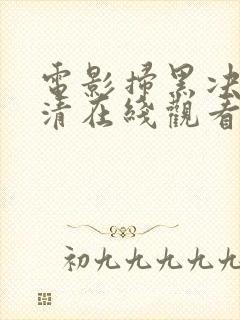 電影掃黑决
清在綫觀看
初九九九九九